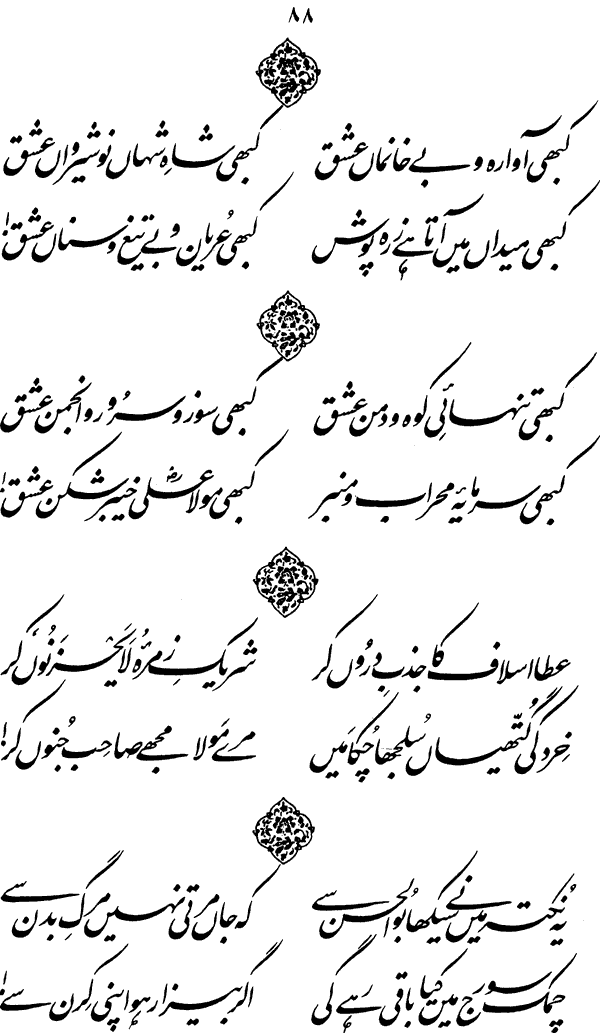 ۸۸
کبھی آوارہ و بے خانماں عشق کبھی شاہِ شہاں نوشیرواں عشق
کبھی میداں میں آتا ہے زرہ پوش کبھی عُریان و بے تیغ و سناں عشق!
کبھی تنہائیِ کوہ و دمن عشق کبھی سوز و سرُور و انجمن عشق
کبھی سرمایۂ محراب و منبر کبھی مولا علیؓ خیبر شکن عشق!
عطا اسلاف کا جذبِ دروُں کر شریکِ زمرۂ لَا یَحْزَنُوں کر
خِرد کی گُتھیاں سُلجھا چکا مَیں مرے مَولا مجھے صاحب جُنوں کر!
یہ نُکتہ میں نے سیکھا بُوالحسن سے کہ جاں مرتی نہیں مرگِ بدن سے
چمک سورج میں کیا باقی رہے گی اگر بیزار ہو اپنی کِرن سے!